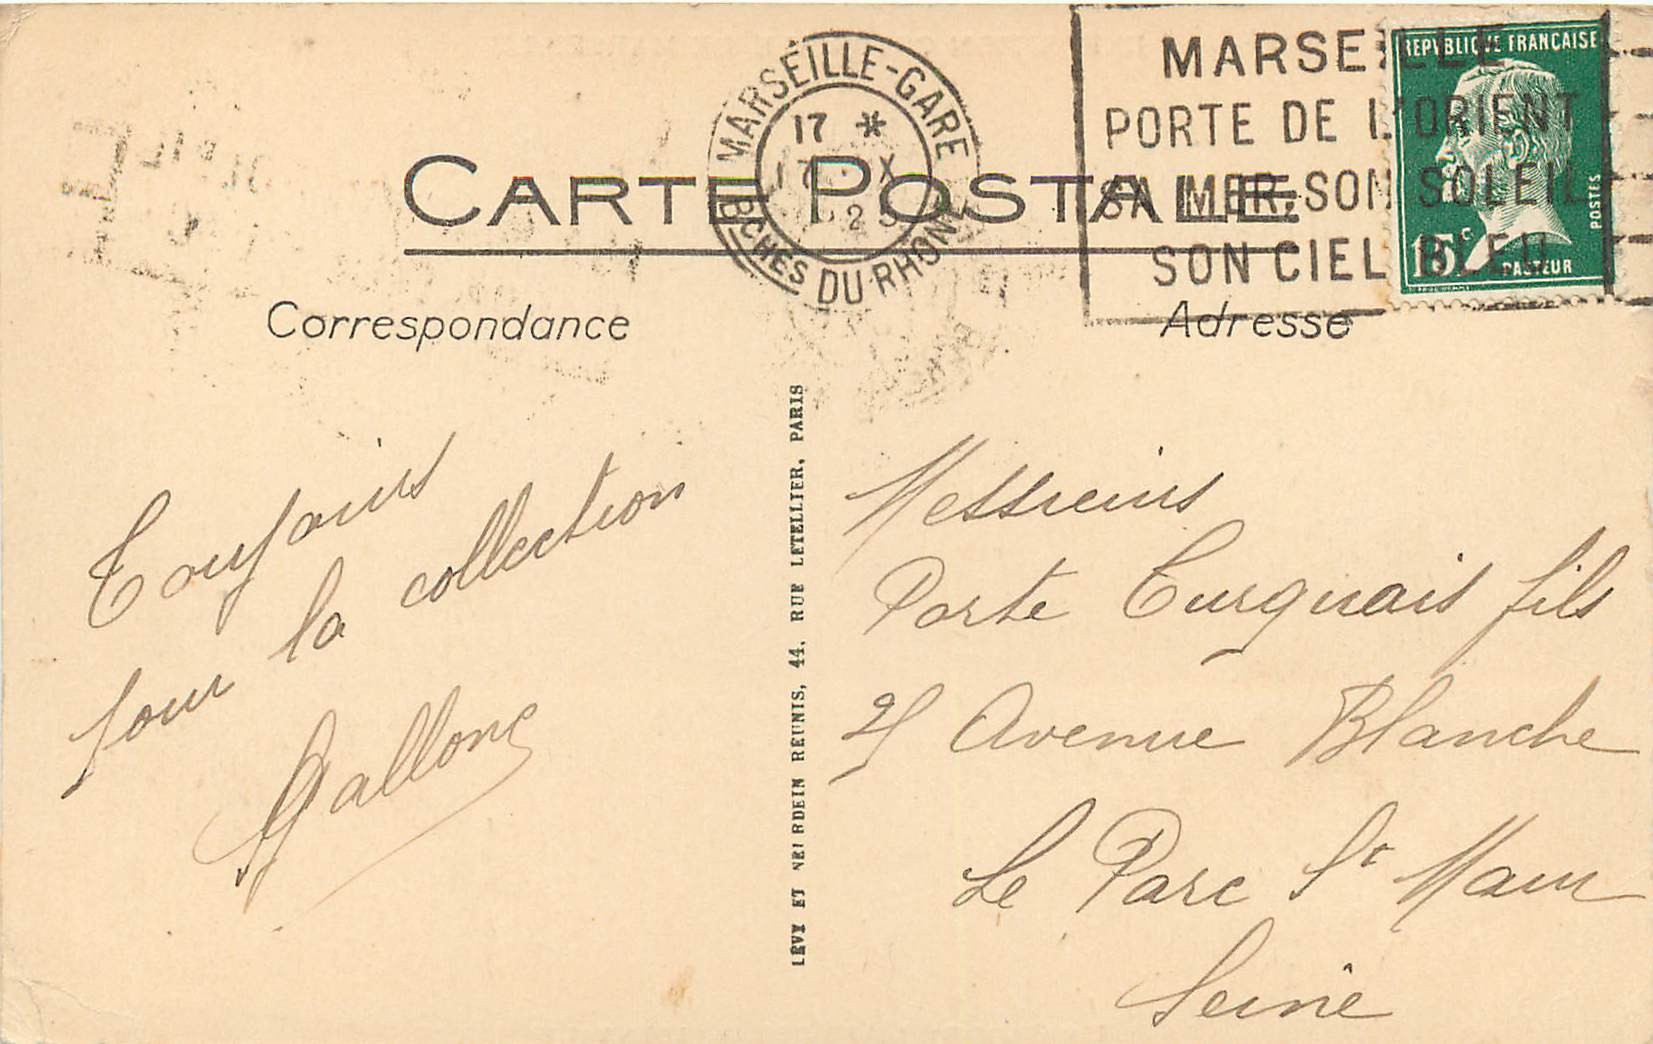 MARSEILLE
PORTE DE L'ORIENT
SA MER, SON SOLEIL
SON CIEL BLEU
REPUBLIQUE FRANÇAISE
POSTES
15c
PASTEUR
MARSEILLE-GARE
17 *
7 X
25
BCHES DU RHONE
CARTE POSTALE
Correspondance
Adresse
Toujours
pour la collection
Gallone
LÉVY ET NEURDEIN RÉUNIS, 44, RUE LETELLIER, PARIS
Messieurs
Porte Turquais fils
Avenue Blanche
Le Parc St Maur
Seine